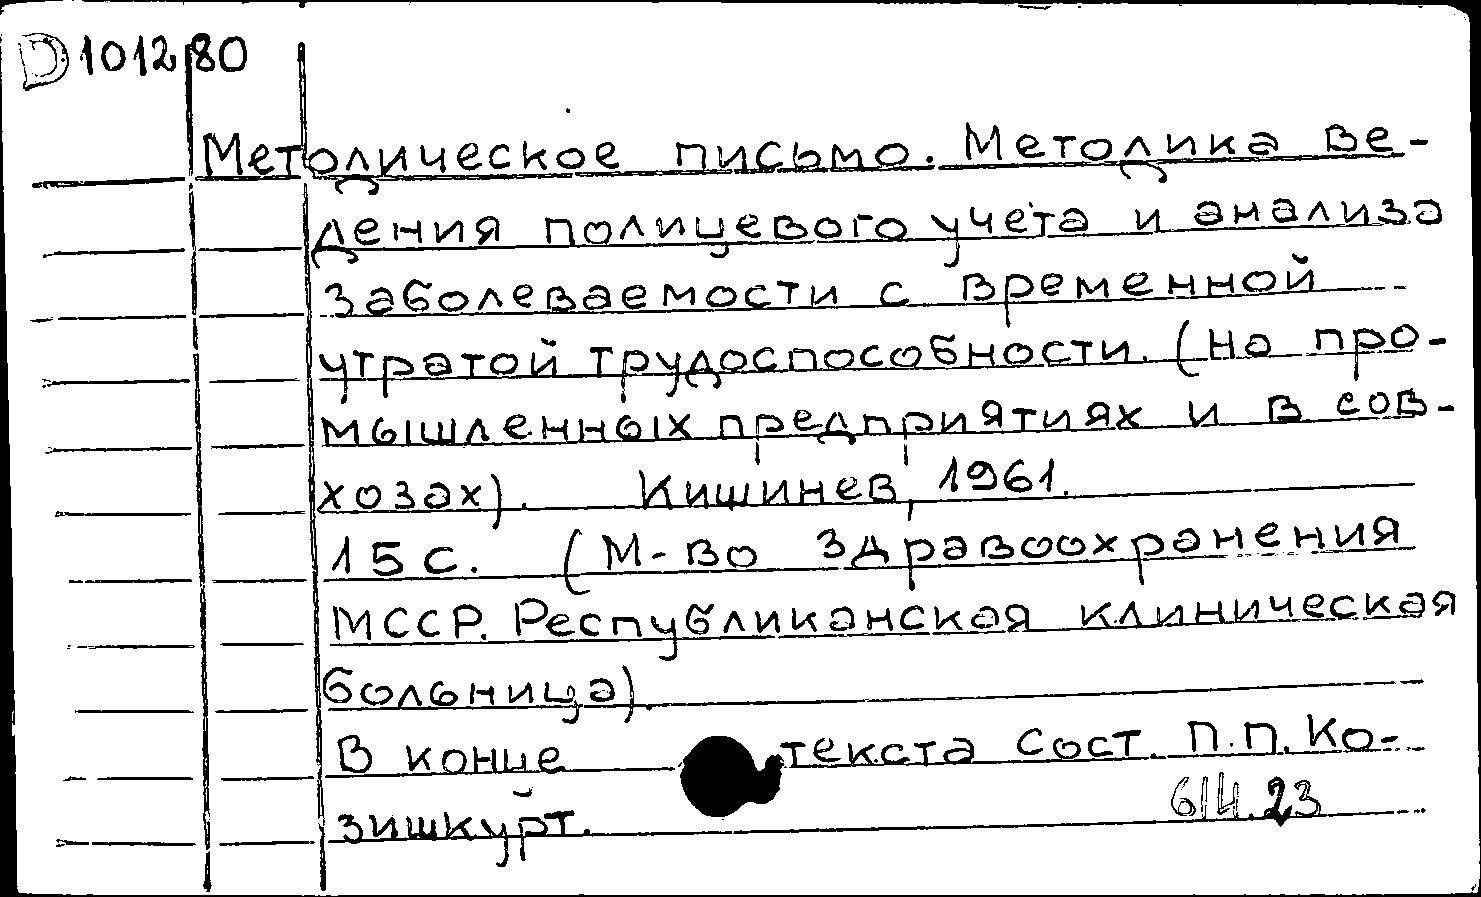 D 101280
Методическое письмо. Методика ве-
дения полицевого учета и анализа
заболеваемости с временной
утратой трудоспособности. (на про-
мышленных предприятиях и в сов-
хозах). Кишинев, 1961.
15 с. (М-во здравоохранения
МССР. Республиканская клиническая
больница).
В конце текста сост. П.П. Ко-
зишкурт.
614.23